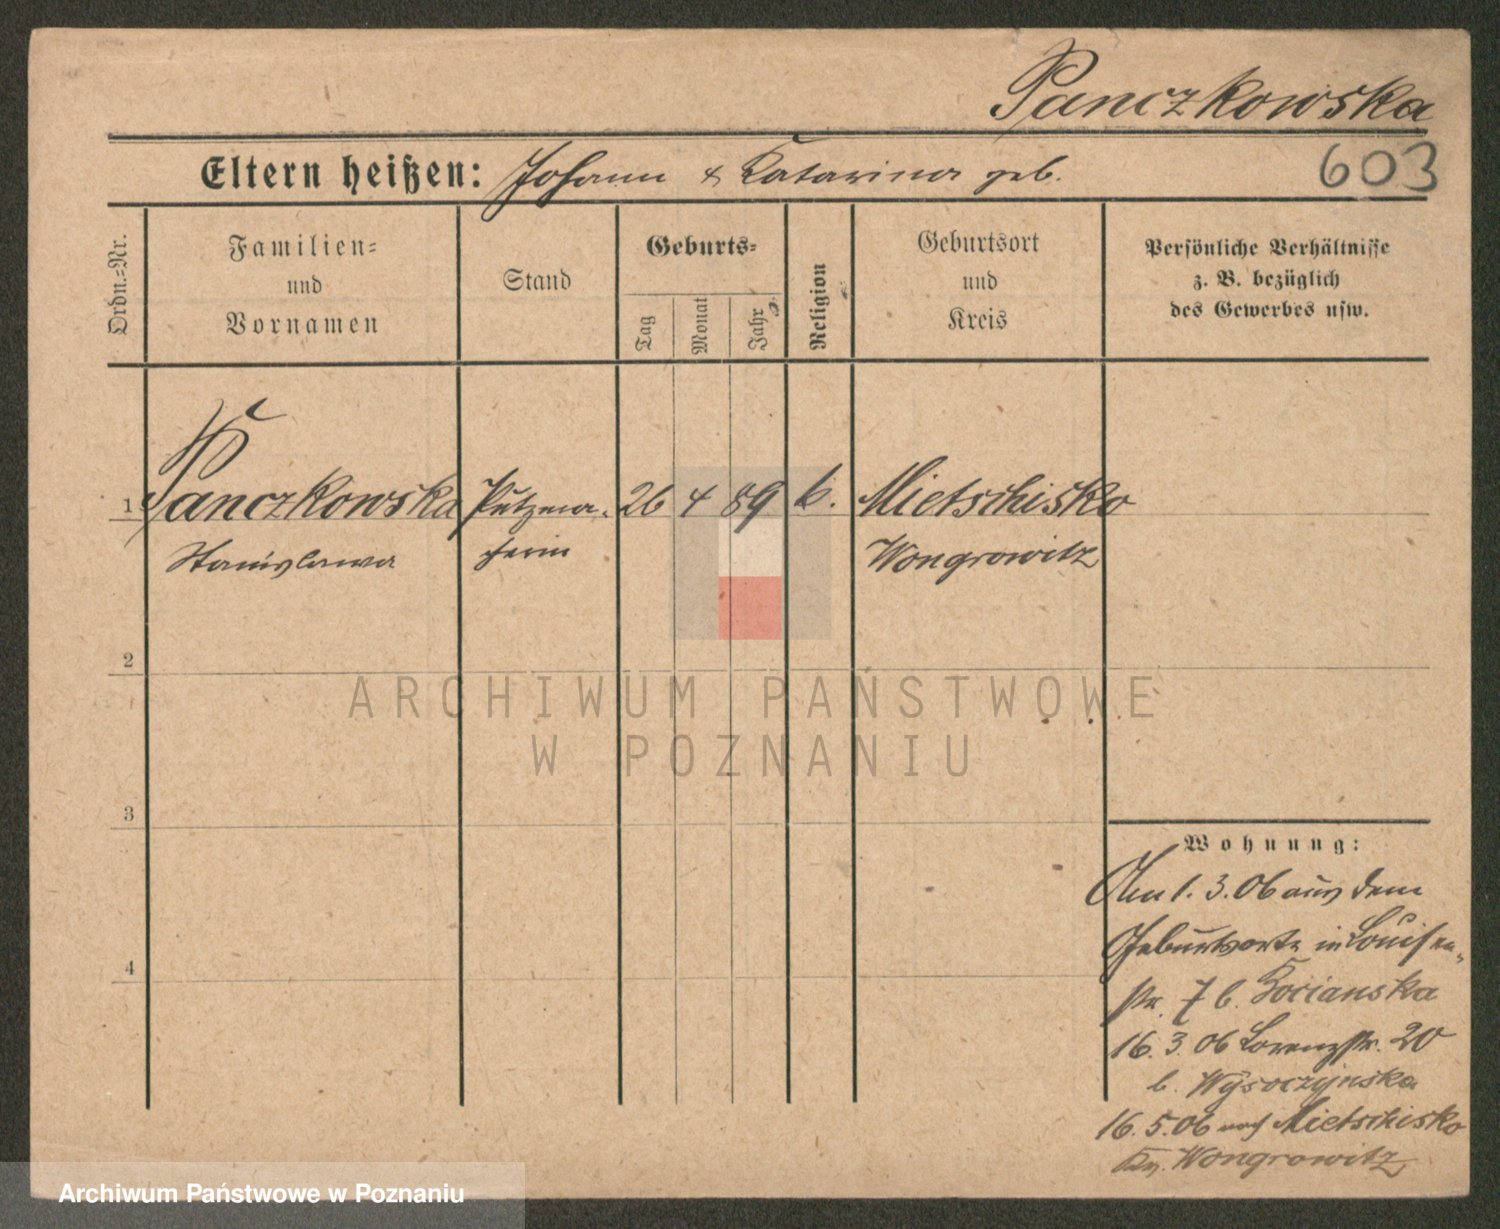 Panczkowska
Eltern heißen: Johann & Katarina geb.
603
Ordn.=Nr.
Familien=
und
Vornamen
Stand
Geburts=
Tag
Monat
Jahr
Religion
Geburtsort
und
Kreis
Persönliche Verhältnisse
z. B. bezüglich
des Gewerbes usw.
1 Panczkowska Putzma- 26 4 89 k. Mietschisko
Stanislawa cherin Wongrowitz
2
3
4
Wohnung:
Am 1. 3. 06 aus dem
Geburtsorte in Louisen-
str. 7 b. Kocianska
16. 3. 06 Lorenzstr. 20
b. Wysoczynska
16. 5. 06 nach Mietschisko
Kr. Wongrowitz
ARCHIWUM PAŃSTWOWE
W POZNANIU
Archiwum Państwowe w Poznaniu